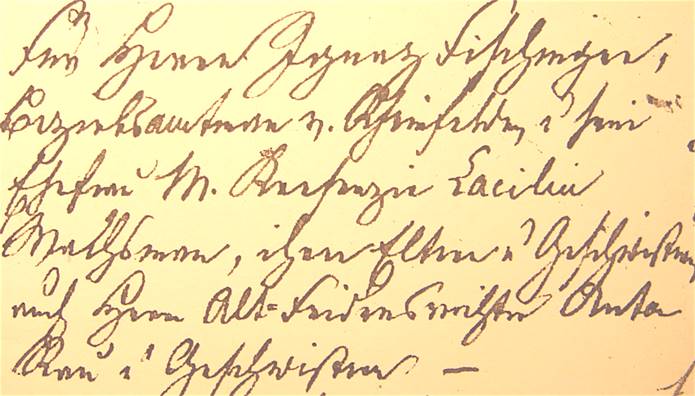 Für Herrn Ignaz Fischinger,
Bezirksamtman v. Rheinfelden u seine
Ehefrau M. Kreszenzia Cacilia
Wathsman, ihre Eltern u Geschwistern
auch Herrn Alt-Fridensrichter Anton
Rau u Geschwistern —